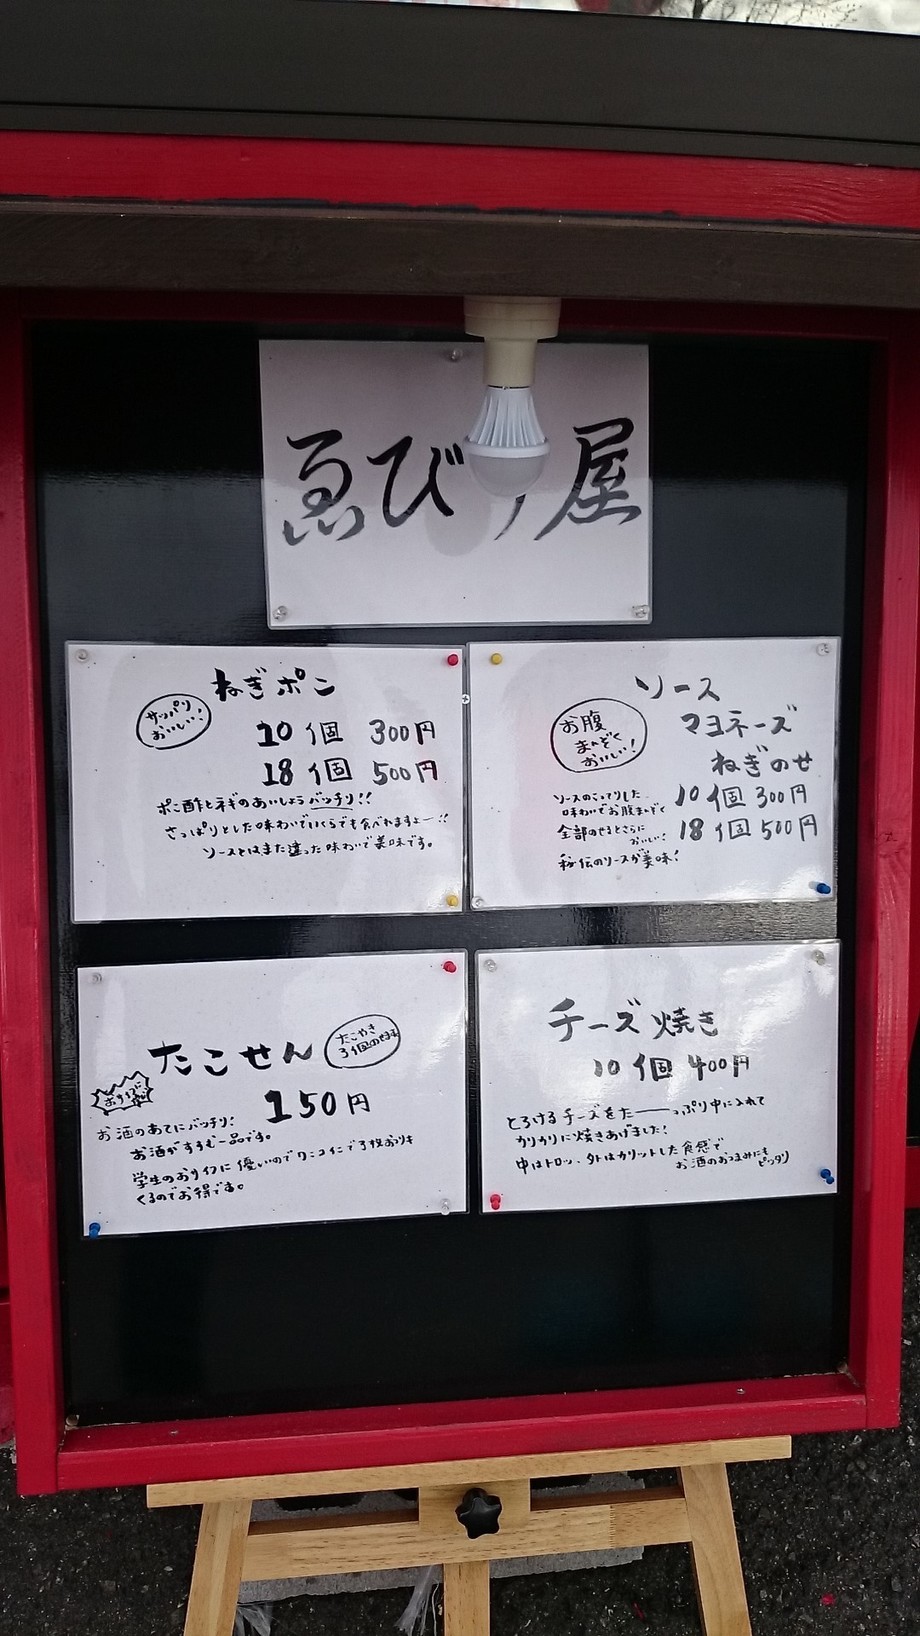 ゑび 屋
ねぎポン
サッパリ
おいしい!
10個 300円
18個 500円
ポン酢とネギのあいしょうバッチリ!!
さっぱりとした味わいでいくらでも食べれますよー!!
ソースとはまた違った味わいで美味です。
ソース
マヨネーズ
ねぎのせ
お腹
まんぞく
おいしい!
10個 300円
18個 500円
ソースのこってりした
味わいでお腹まんぞく
全部のせるとさらに
おいしい!
秘伝のソースが美味!
たこせん
たこやき
3個のせ
おやつに
150円
お酒のあてにバッチリ!
お酒がすすむ一品です。
学生のおサイフに優しいのでワンコインで3枚おつりも
くるのでお得です。
チーズ焼き
10個 400円
とろけるチーズをた――っぷり中に入れて
カリカリに焼きあげました!
中はトロッ、外はカリットした食感で
お酒のおつまみにも
ピッタリ